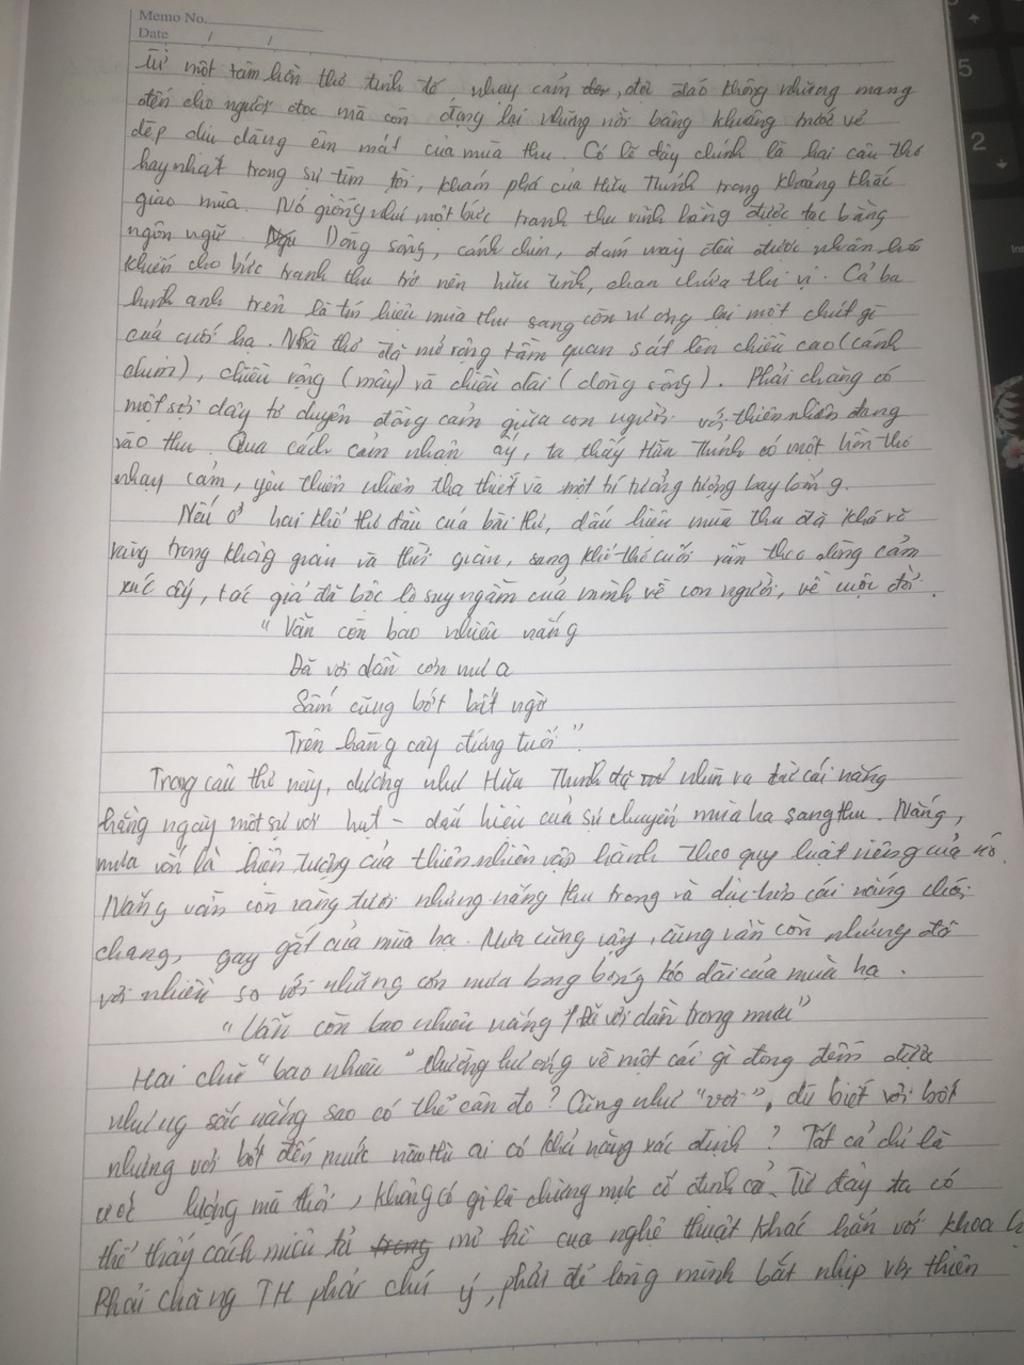 Memo No.
Date / /
Từ một tâm hồn thơ tinh tế nhạy cảm, độc đáo không những mang
đến cho người đọc mà còn đọng lại những nỗi bâng khuâng trước vẻ
đẹp dịu dàng êm mát của mùa thu. Có lẽ đây chính là hai câu thơ
hay nhất trong sự tìm tòi, khám phá của Hữu Thỉnh trong khoảng khắc
giao mùa. Nó giống như một bức tranh thu vĩnh hằng được tạc bằng
ngôn ngữ. Dòng sông, cánh chim, đám mây đều được nhân hoá
khiến cho bức tranh thu trở nên hữu tình, chan chứa thi vị. Cả ba
hình ảnh trên là tín hiệu mùa thu sang còn vương lại một chút gì
của cuối hạ. Nhà thơ đã mở rộng tầm quan sát lên chiều cao (cánh
chim), chiều rộng (mây) và chiều dài (dòng sông). Phải chăng có
một sợi dây tơ duyên đồng cảm giữa con người với thiên nhiên đang
vào thu. Qua cách cảm nhận ấy, ta thấy Hữu Thỉnh có một hồn thơ
nhạy cảm, yêu thiên nhiên tha thiết và một trí tưởng tượng bay bổng.
Nếu ở hai khổ thơ đầu của bài thơ, dấu hiệu mùa thu đã khá rõ
ràng trong không gian và thời gian, sang khổ thơ cuối vẫn theo dòng cảm
xúc ấy, tác giả đã bộc lộ suy ngẫm của mình về con người, về cuộc đời.
"Vẫn còn bao nhiêu nắng
Đã vơi dần cơn mưa
Sấm cũng bớt bất ngờ
Trên hàng cây đứng tuổi".
Trong câu thơ này, dường như Hữu Thỉnh đã nhìn ra từ cái nắng
hằng ngày một sự vơi hụt - dấu hiệu của sự chuyển mùa hạ sang thu. Nắng,
mưa vốn là hiện tượng của thiên nhiên vận hành theo quy luật riêng của nó.
Nắng vẫn còn vàng tươi nhưng nắng thu trong và dịu hơn cái nắng chói
chang, gay gắt của mùa hạ. Mưa cũng vậy, cũng vẫn còn nhưng đã
vơi nhiều so với những cơn mưa kéo dài của mùa hạ.
"Vẫn còn bao nhiêu nắng / Đã vơi dần trong mưa"
Hai chữ "bao nhiêu" thường hướng về một cái gì đong đếm được
nhưng sắc nắng sao có thể cân đo? Cũng như "vơi", dù biết vơi bớt
nhưng vơi bớt đến mức nào thì ai có khả năng xác định? Tất cả chỉ là
ước lượng mà thôi, không có gì là chừng mực cố định cả. Từ đây ta có
thể thấy cách miêu tả mơ hồ của nghệ thuật khác hẳn với khoa
Phải chăng TH phải chú ý, phải để lòng mình bắt nhịp với thiên